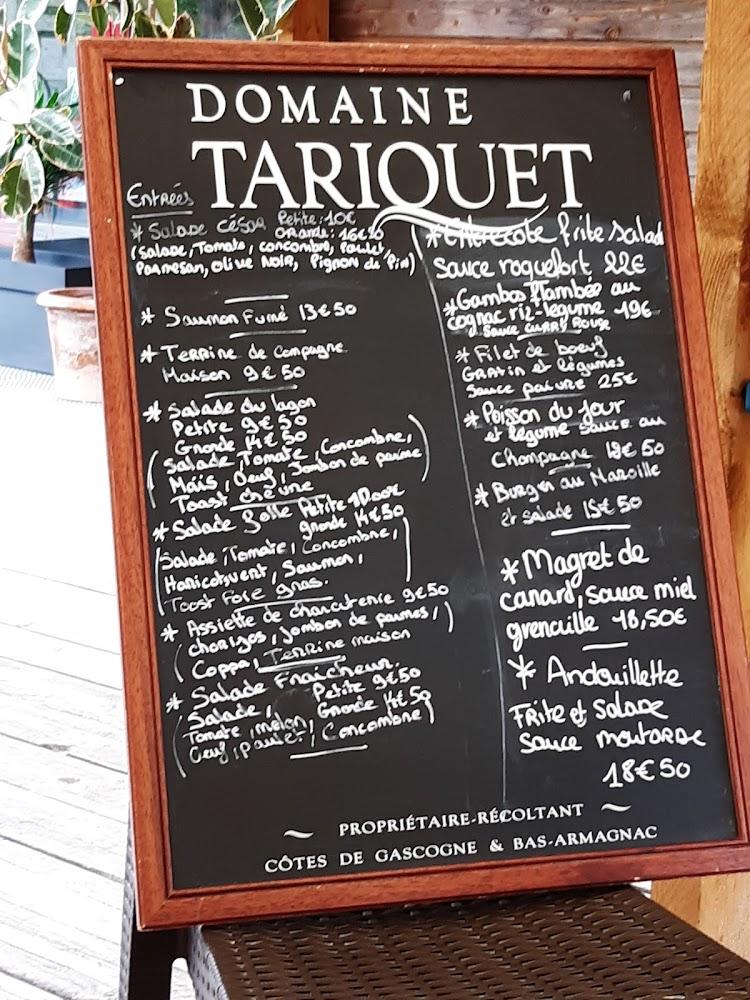 DOMAINE
TARIQUET
Entrées
* Salade César Petite: 10€
Grande: 16€50
(Salade, Tomate, concombre, Poulet,
Parmesan, olive Noir, Pignon de Pin)
* Saumon Fumé 13€50
* Terrine de Campagne
Maison 9€50
* Salade du lagon
Petite 9€50
Grande 14€50
(Salade, Tomate, Concombre,
Maïs, Oeuf, Jambon de parme)
Toast chèvre
* Salade Petite
grande 14€50
(Salade, Tomate, Concombre,
Haricots vert, Saumon,
Toast Foie gras.
* Assiette de charcuterie 9€50
(chorizos, Jambon de parmes,)
Coppa, Terrine maison
* Salade Fraicheur.
Salade, Petite 9€50
Tomate, melon, Grande 14€50
Oeuf, poulet, Concombre)
* Entrecote frite salad
Sauce roquefort 22€
* Gambas flambée au
cognac riz-legume 19€
Sauce curry Rouge
* Filet de boeuf
Gratin et légumes
Sauce poivre 25€
* Poisson du jour
et légume sauce au
Champagne 19€50
* Burger au Maroille
et salade 15€50
* Magret de
canard, sauce miel
grenaille 18,50€
* Andouillette
Frite et Salade
Sauce moutarde
18€50
~ PROPRIÉTAIRE-RÉCOLTANT ~
CÔTES DE GASCOGNE & BAS-ARMAGNAC